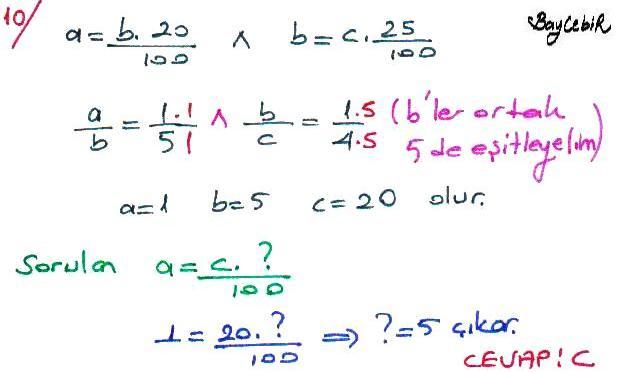 10/ a = b. 20/100 ∧ b = c. 25/100 BayCebiR
a/b = 1.1/5.1 ∧ b/c = 1.5/4.5 (b'ler ortak
5 de eşitleyelim)
a=1 b=5 c=20 olur.
Sorulan a = c. ?/100
1 = 20. ?/100 ⇒ ?=5 çıkar.
CEVAP: C